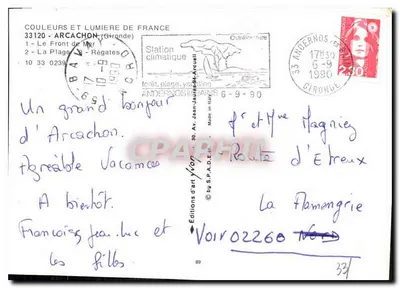 COULEURS ET LUMIERE DE FRANCE
33120 - ARCACHON (Gironde)
1 - Le Front de Mer
2 - La Plage - Régates
10 33 0239
Station
climatique
forêt, plage,
ANDERNOS-LES-BAINS
6-9-90
33 ANDERNOS-LES-BAINS
17H30
6-9
1990
GIRONDE
2,30
Un grand bonjour
d'Arcachon.
Agréable Vacances
A bientôt.
Françoise, Jean-Luc et
les filles
Editions d'art Yvon
© by S.P.A.D.E.M.
Mr et Mme Magniez
Route d'Etreux
La Flamengrie
Voir 02260 Nord
33/
CPARAMA